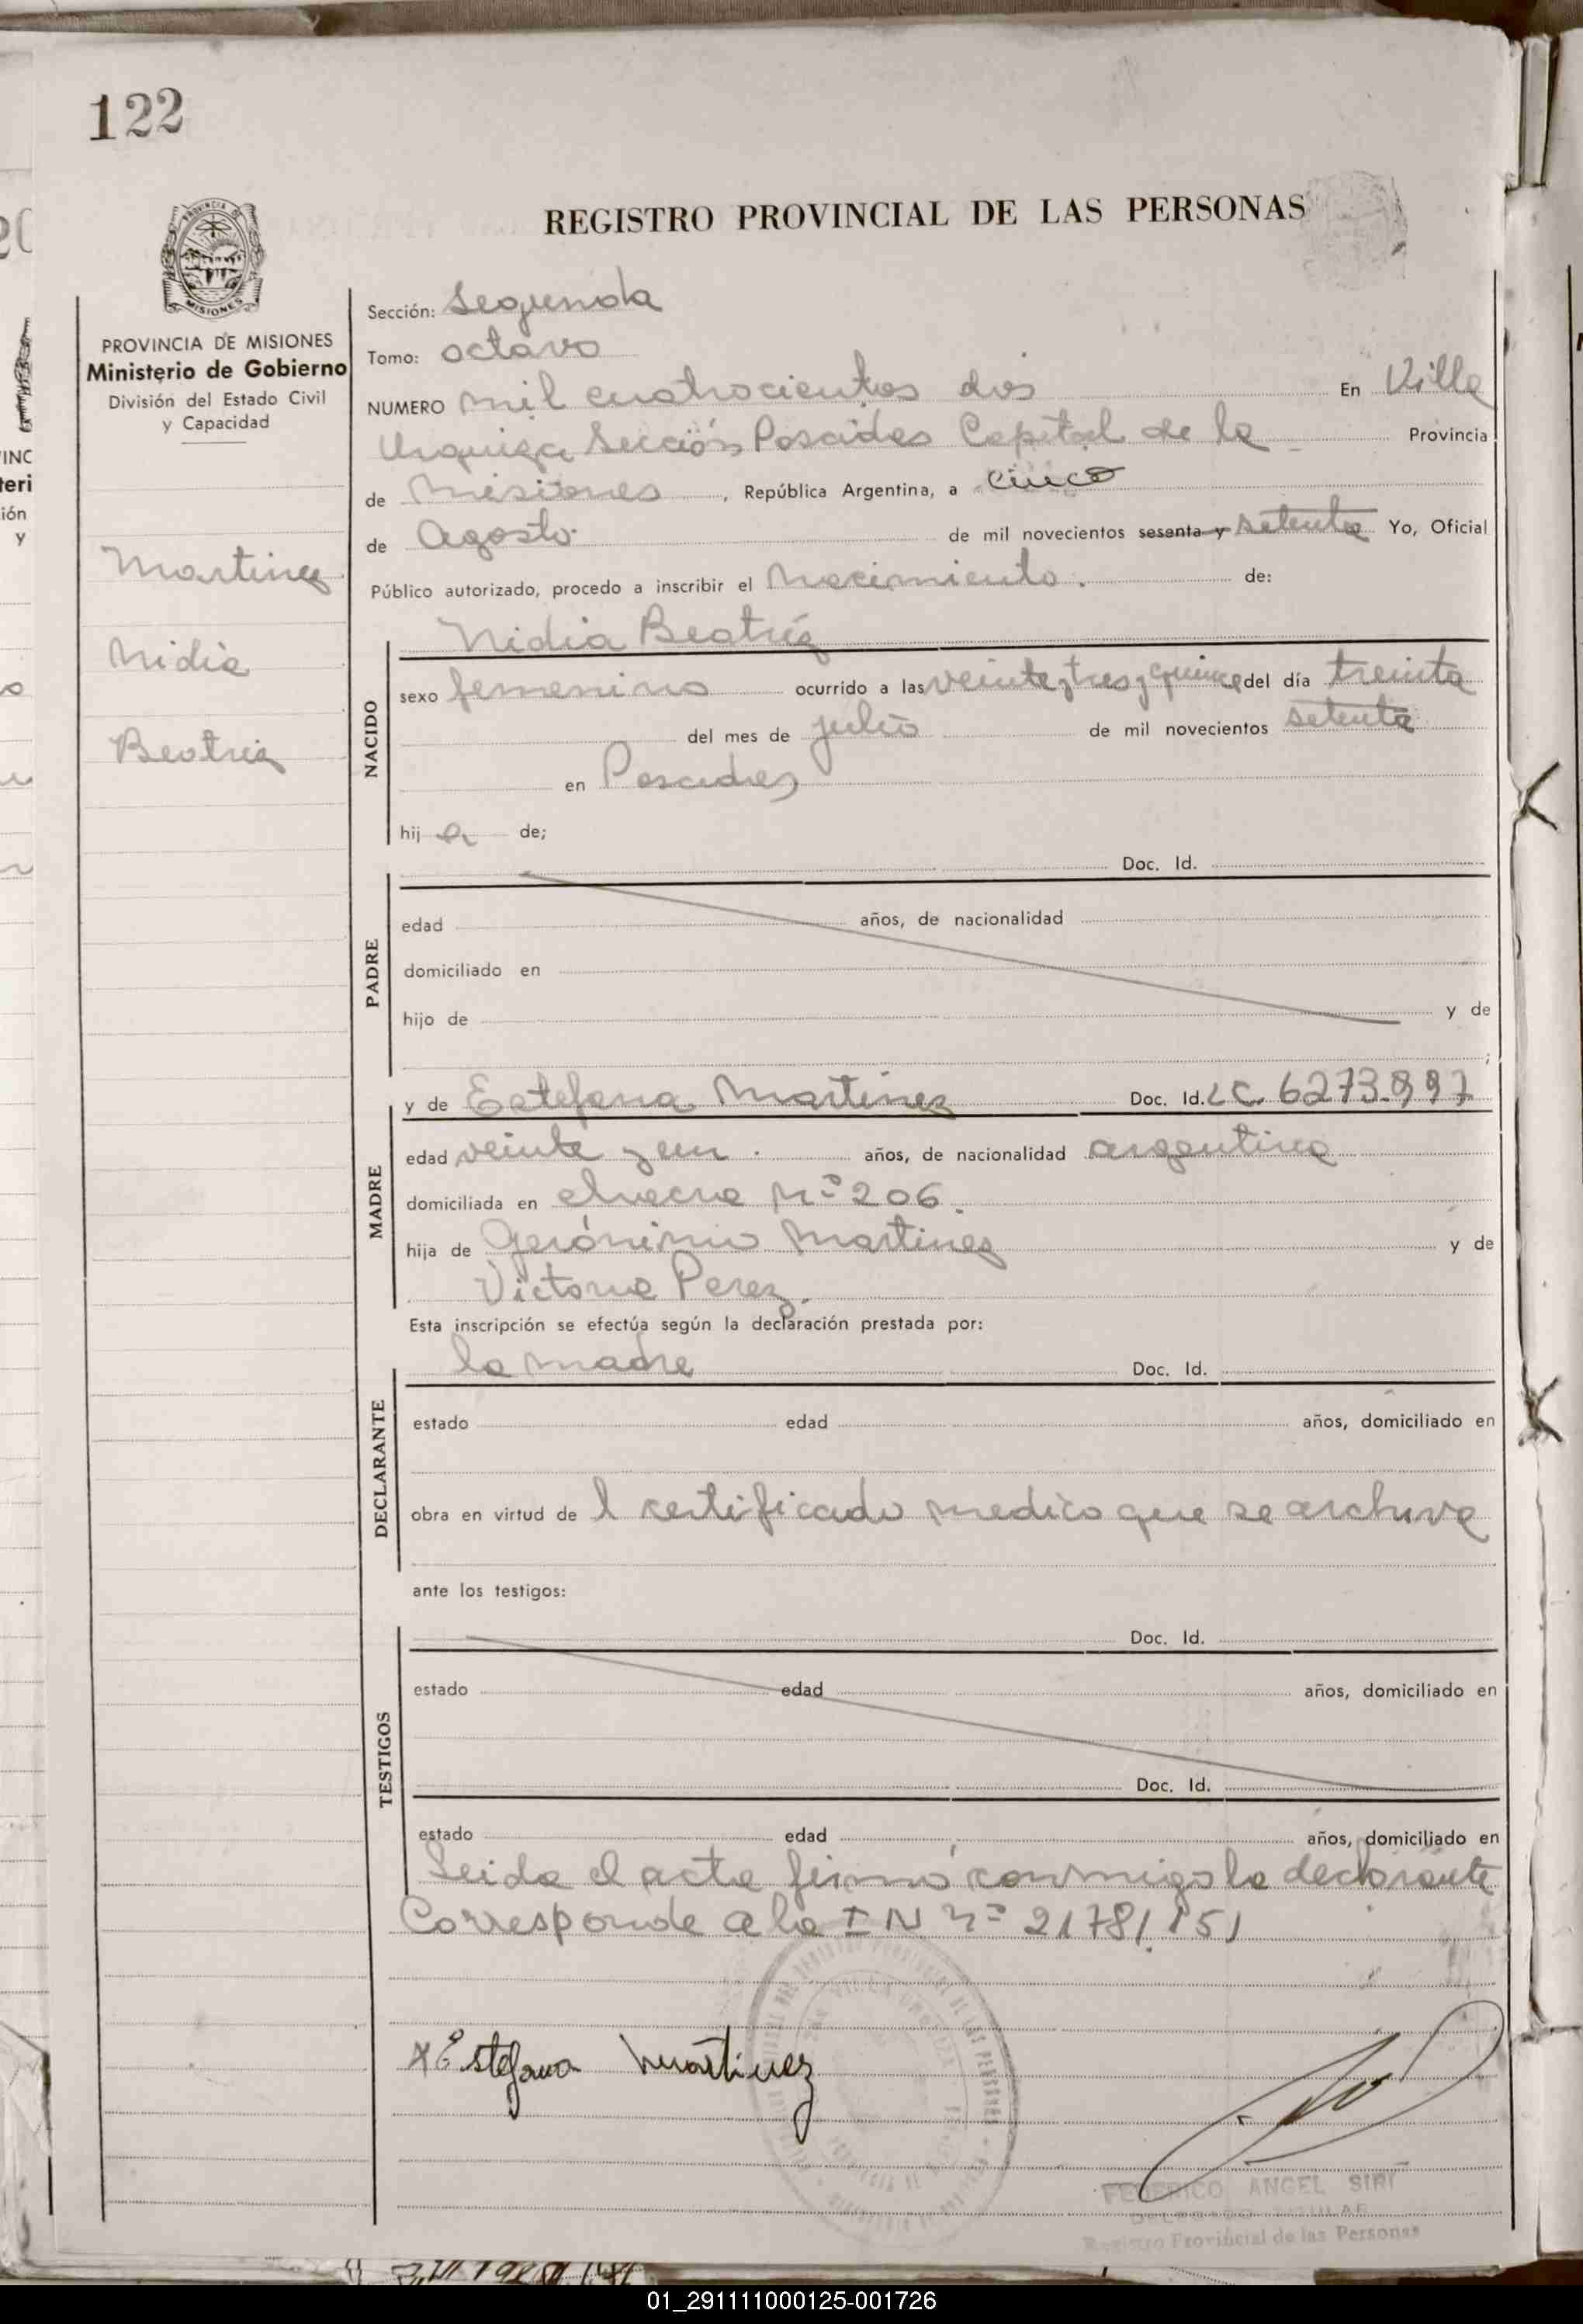 122
REGISTRO PROVINCIAL DE LAS PERSONAS
PROVINCIA DE MISIONES
Ministerio de Gobierno
División del Estado Civil
y Capacidad
Martinez
Nidia
Beatriz
Sección: Segunda
Tomo: octavo
NUMERO mil cuatrocientos dos En Villa
Urquiza Sección Posadas Capital de la Provincia
de Misiones, República Argentina, a cinco
de Agosto. de mil novecientos sesenta y setenta Yo, Oficial
Público autorizado, procedo a inscribir el Nacimiento. de:
Nidia Beatríz
NACIDO
sexo femenino ocurrido a las veinte y tres y quince del día treinta
del mes de julio de mil novecientos setenta
en Posadas
hij a de;
PADRE
Doc. Id.
edad años, de nacionalidad
domiciliado en
hijo de y de
;
MADRE
y de Estefana Martinez Doc. Id. LC. 6273.997
edad veinte y un. años, de nacionalidad argentina
domiciliada en chacra Nº 206.
hija de Gerónimo Martinez y de
Victoria Perez.
Esta inscripción se efectúa según la declaración prestada por:
DECLARANTE
la madre Doc. Id.
estado edad años, domiciliado en
obra en virtud de l certificado medico que se archiva
ante los testigos:
TESTIGOS
Doc. Id.
estado edad años, domiciliado en
Doc. Id.
estado edad años, domiciliado en
Leida el acta firmó conmigo la declarante
Corresponde a la I N nº 21781151
x Estefana Martinez
FEDERICO ANGEL SIRI
DELEGADO TITULAR
Registro Provincial de las Personas
01_291111000125-001726